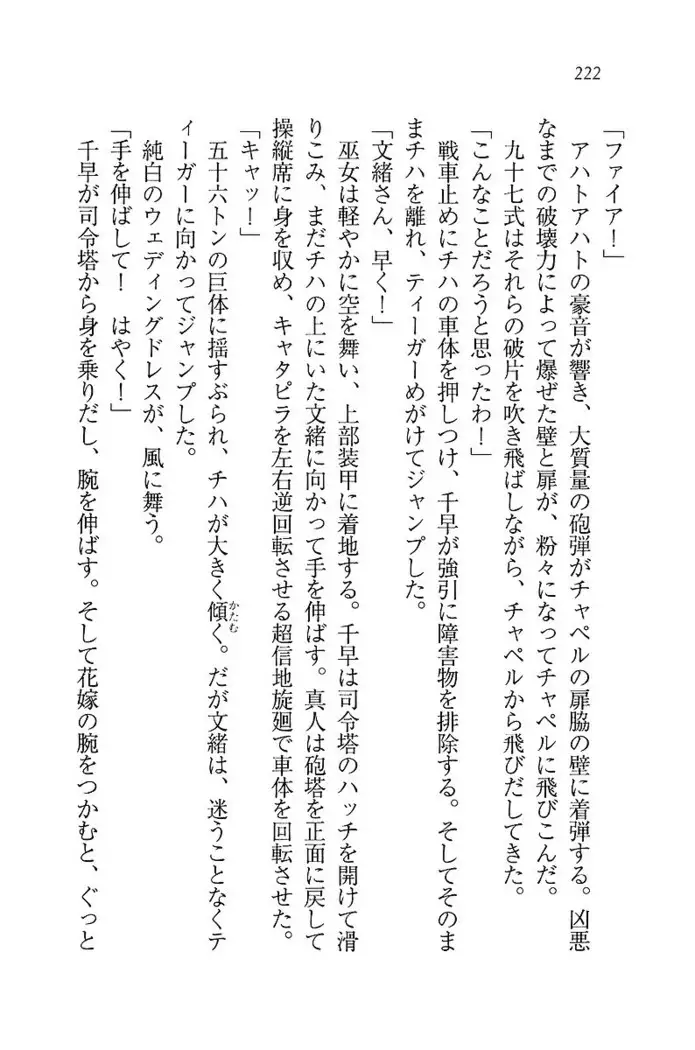 222
「ファイア！」
　アハトアハトの豪音が響き、大質量の砲弾がチャペルの扉脇の壁に着弾する。凶悪
なまでの破壊力によって爆ぜた壁と扉が、粉々になってチャペルに飛びこんだ。
　九十七式はそれらの破片を吹き飛ばしながら、チャペルから飛びだしてきた。
「こんなことだろうと思ったわ！」
　戦車止めにチハの車体を押しつけ、千早が強引に障害物を排除する。そしてそのま
まチハを離れ、ティーガーめがけてジャンプした。
「文緒さん、早く！」
　巫女は軽やかに空を舞い、上部装甲に着地する。千早は司令塔のハッチを開けて滑
りこみ、まだチハの上にいた文緒に向かって手を伸ばす。真人は砲塔を正面に戻して
操縦席に身を収め、キャタピラを左右逆回転させる超信地旋廻で車体を回転させた。
「キャッ！」
　五十六トンの巨体に揺すぶられ、チハが大きく傾く。だが文緒は、迷うことなくテ
かたむ
ィーガーに向かってジャンプした。
　純白のウェディングドレスが、風に舞う。
「手を伸ばして！　はやく！」
　千早が司令塔から身を乗りだし、腕を伸ばす。そして花嫁の腕をつかむと、ぐっと